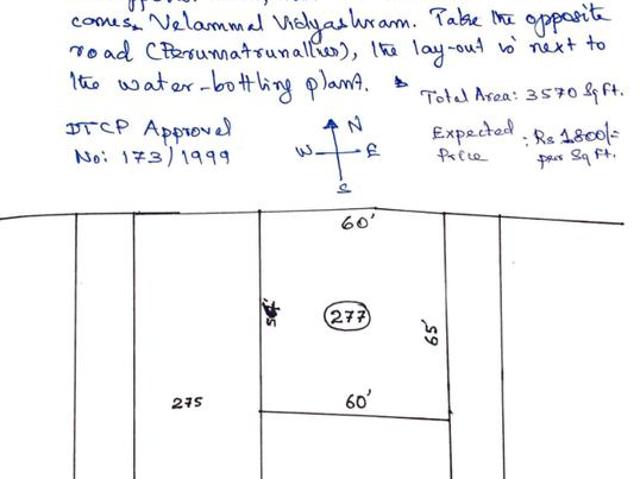 comes, Velammal Vidyashram. Take the opposite
road (Perumattunallur), the lay-out is next to
the water-bottling plant.
Total Area: 3570 Sq Ft.
DTCP Approval
No: 173/1999
N
W E
S
Expected Price : Rs 1800/= per Sq Ft.
60'
277
65'
275
60'